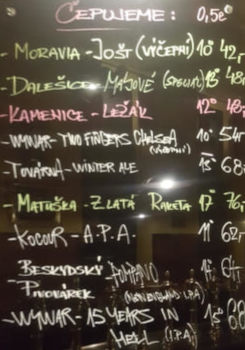 ČEPUJEME: 0,5l
- MORAVIA - JOŠT (VÝČEPNÍ) 10° 42,-
- DALEŠICE MÁJOVÉ (SPECIÁL) 13° 48,-
KAMENICE - LEŽÁK 12° 48,-
- WYWAR - TWO FINGERS CHELSEA 10° 54,-
(VÝČEPNÍ)
- TOVÁRNA - WINTER ALE 15° 68,-
- MATUŠKA - ZLATÁ RAKETA 17° 76,-
- KOCOUR - A.P.A 11° 62,-
BESKYDSKÝ POMPANO 64,-
PIVOVÁREK (NEW ENGLAND I.P.A)
- WYWAR - 15 YEARS IN 15°
HELL (I.P.A.)